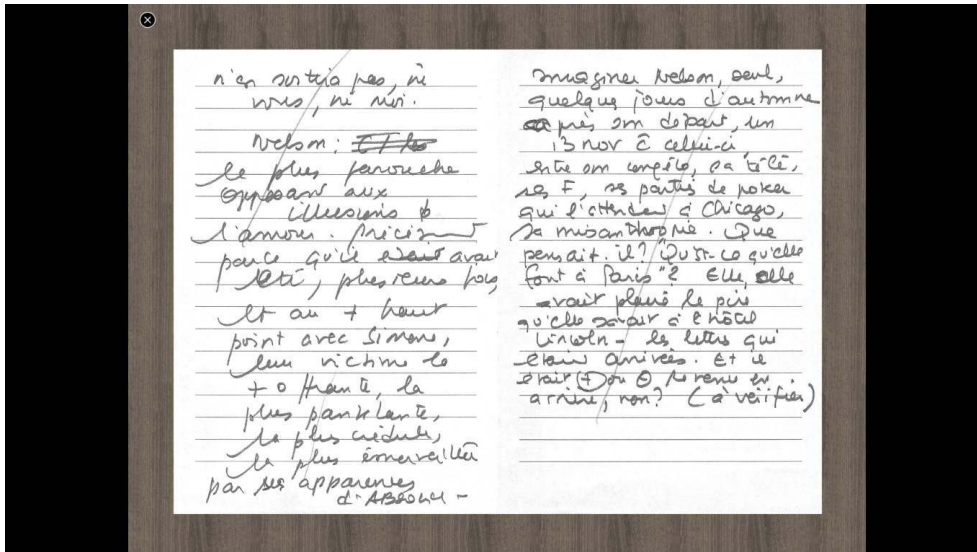 n'en sortira pas, ni
vous, ni moi.
Nelson :
le plus farouche
opposant aux
illusions d
l'amour. Précisément
parce qu'il avait
été, plusieurs fois,
et au + haut
point avec Simone,
leur victime la
+ offrante, la
plus pantelante,
la plus crédule,
la plus émerveillée
par ses apparences
d'ABSOLU -
Imaginer Nelson, seul,
quelque jours d'automne
après son départ, un
13 nov à celui-ci,
entre son complet, sa télé,
ses F, ses parties de poker
qui l'attendent à Chicago,
sa misanthropie. Que
pensait-il ? "Qu'est-ce qu'elle
font à Paris" ? Elle, elle
avait pleuré le pire
qu'elle savait à l'hôtel
Lincoln - les lettres qui
étaient arrivées. Et il
était (+) ou (-) revenu en
arrière, non ? (à vérifier)